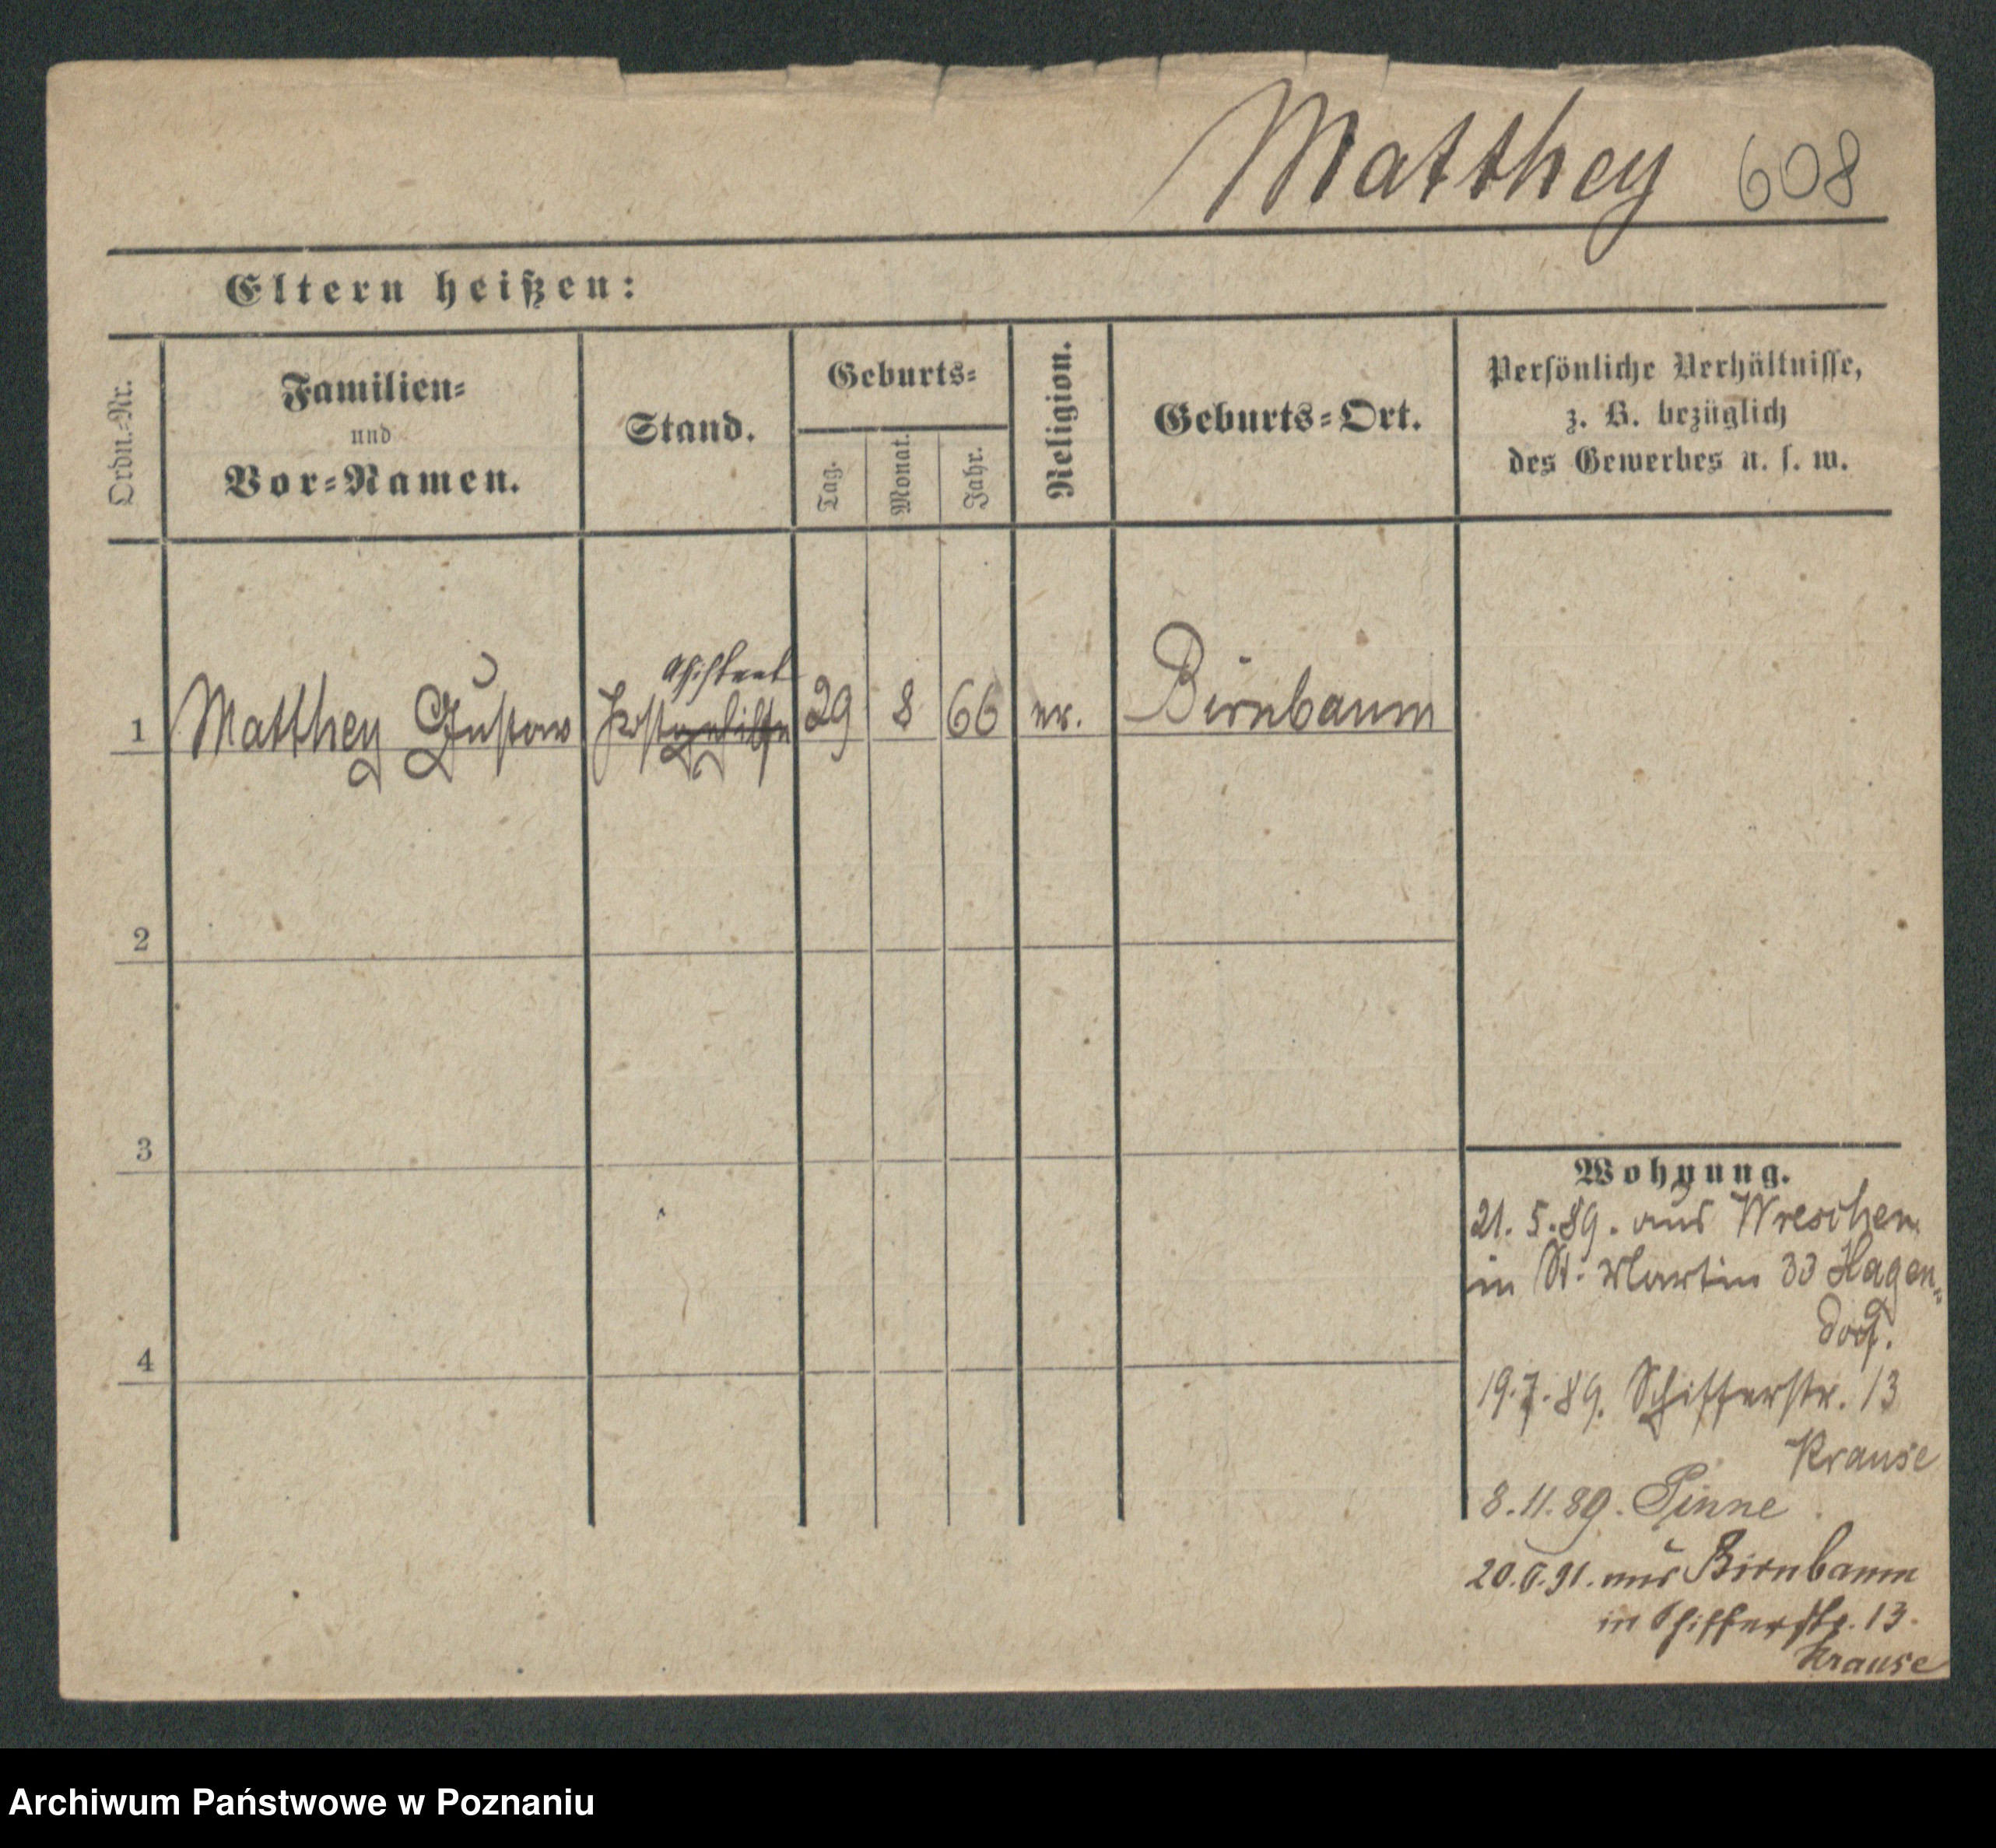 Matthey 608
Eltern heißen:
Ordn.-Nr.
Familien-
und
Vor-Namen.
Stand.
Geburts-
Tag.
Monat.
Jahr.
Religion.
Geburts-Ort.
Persönliche Verhältnisse,
z. B. bezüglich
des Gewerbes u. s. w.
assistent
1 Matthey Gustav Postgehilfe 29 8 66 ev. Birnbaum
2
3
4
Wohnung.
21. 5. 89. aus Wreschen
in St. Martin 33 Hagen-
dorf.
19. 7. 89. Schifferstr. 13
Krause
8. 11. 89. Pinne
20. 6. 91. aus Birnbaum
in Schifferstr. 13.
Krause
Archiwum Państwowe w Poznaniu